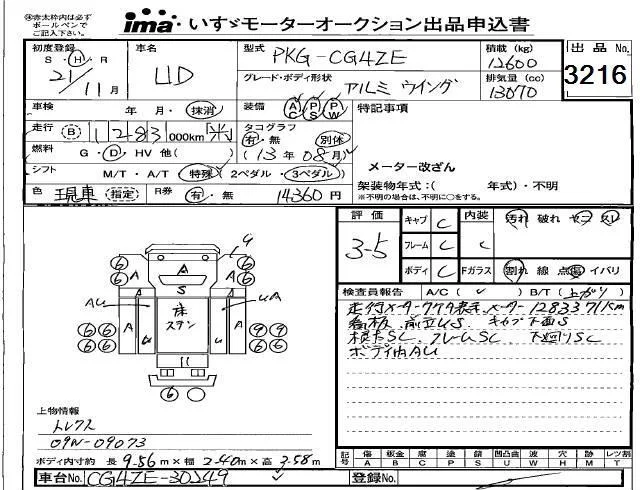 ㊟赤太枠内は必ず
ボールペンで
ご記入下さい。
ima いすゞモーターオークション出品申込書
初度登録 S・H・R 21/11月
車名 UD
型式 PKG-CG4ZE
積載(kg) 12600
出品No. 3216
グレード・ボディ形状 アルミウイング
排気量(cc) 13070
車検 年 月・抹消
装備 AC PS PW
特記事項
走行(B) 11283 000km 米
タコグラフ 有・無 別体
燃料 G・D・HV 他( )
(13年08月)
メーター改ざん
シフト M/T・A/T 特殊(2ペダル・3ペダル)
架装物年式:( 年式)・不明
※不明の場合は、不明に○をする。
色 現車 指定
R券 有・無 14360円
評価 3-5
キャブ C
内装 汚れ 破れ ヤコ クレ
フレーム C
C
ボディ C
Fガラス 割れ 線 点傷 イバリ
検査員報告 A/C( ✓ ) B/T( 上ガリ )
走行メーター 表示 メーター 1283371km
看板 前立US キャブ下面S
根太SC フレームSC 下廻りSC
ボディ内AU
4
6 6 6 6
A A A A
S
AU 床 ステン UA
6 6 6 6 A U U A 9 9 6 6
11
6
上物情報
トレクス
09N-09073
ボディ内寸約 長 9.56m×幅 2.40m×高 2.58m
記号 傷A 鈑金B 腐C 塗P 錆S 凹U 凸W 凹凸曲U 板W 穴H 跡M レツ割T
車台No. CG4ZE-30349
登録No.